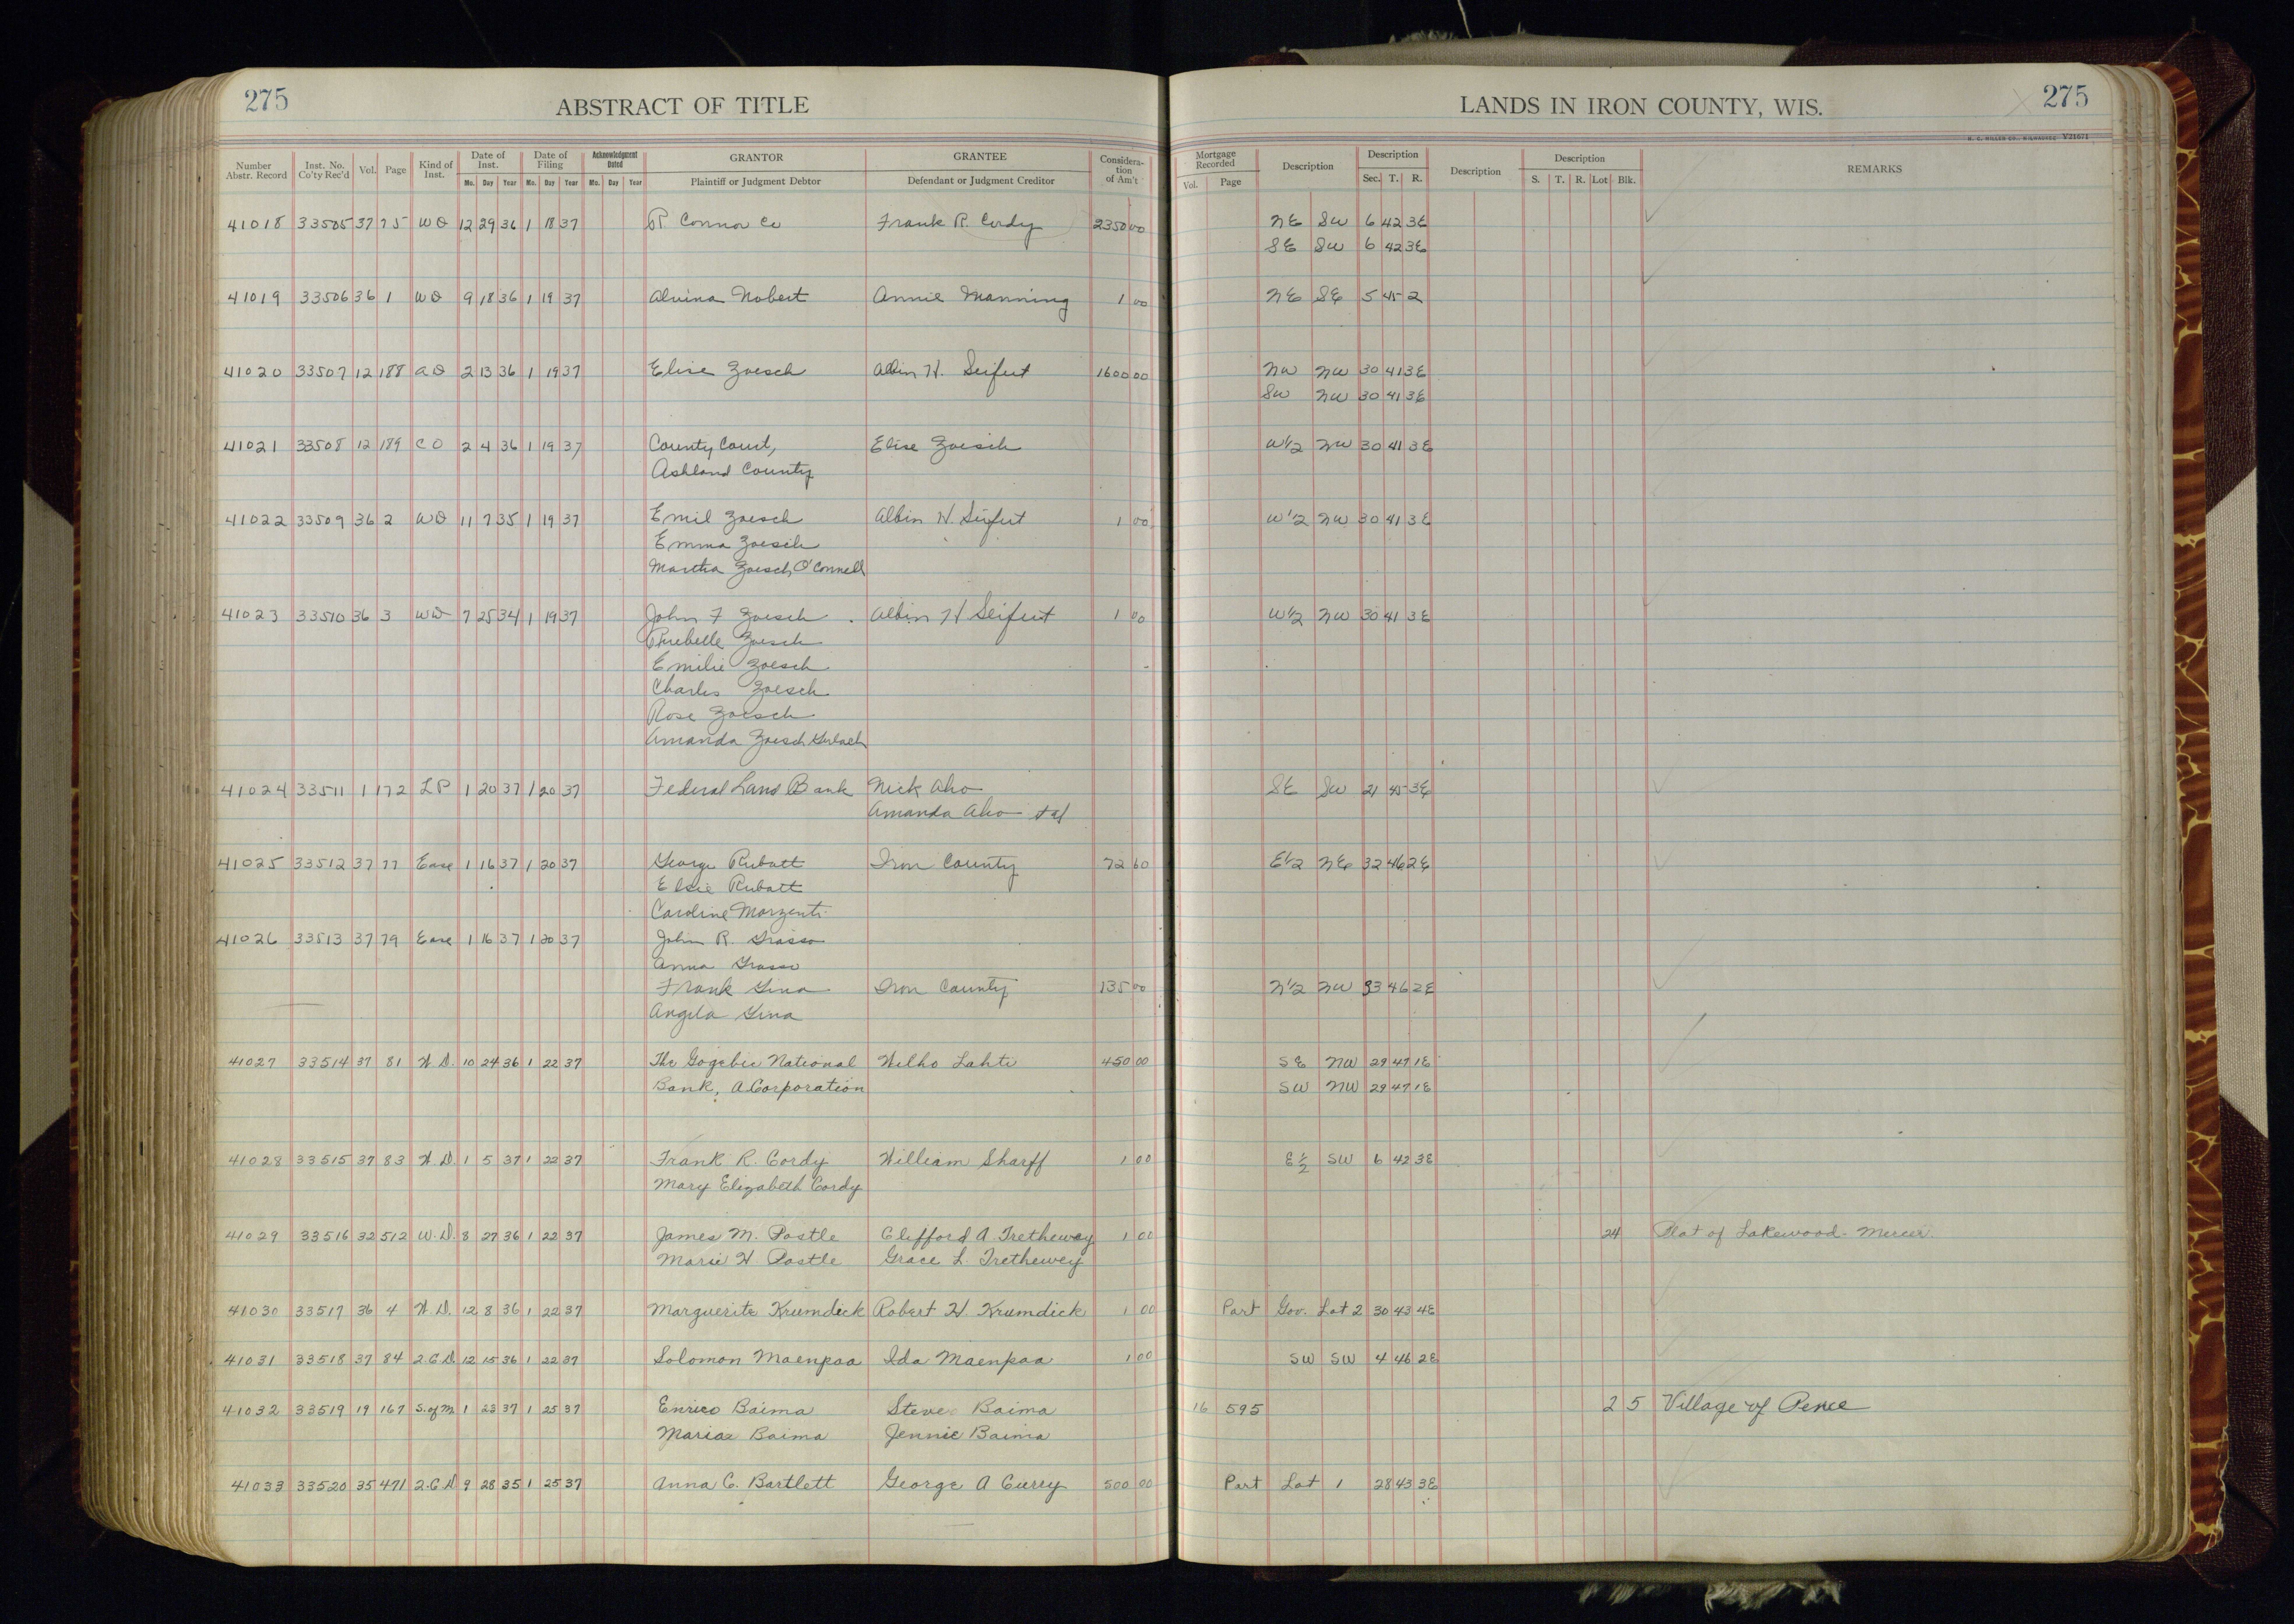 275 ABSTRACT OF TITLE LANDS IN IRON COUNTY, WIS. 275
H. C. MILLER CO., MILWAUKEE V21671
Number Abstr. Record Inst. No. Co'ty Rec'd Vol. Page Kind of Inst. Date of Inst. Date of Filing Acknowledgment Dated GRANTOR GRANTEE Considera-tion of Am't Mortgage Recorded Description Description Description Description REMARKS
Mo. Day Year Mo. Day Year Mo. Day Year Plaintiff or Judgment Debtor Defendant or Judgment Creditor Vol. Page Sec. T. R. S. T. R. Lot Blk.
41018 33505 37 75 WD 12 29 36 1 18 37 R Connor Co Frank R. Cordy 2350 00 NE SW 6 42 3E
SE SW 6 42 3E
41019 33506 36 1 WD 9 18 36 1 19 37 Alvina Nobert Annie Manning 1 00 NE SE 5 45 2
41020 33507 12 188 AD 2 13 36 1 19 37 Elise Zoesch Albin H. Seifert 1600 00 NW NW 30 41 3E
SW NW 30 41 3E
41021 33508 12 189 CO 2 4 36 1 19 37 County Court, Elise Zoesch W1/2 NW 30 41 3E
Ashland County
41022 33509 36 2 WD 11 7 35 1 19 37 Emil Zoesch Albin H. Seifert 1 00 W1/2 NW 30 41 3E
Emma Zoesch
Martha Zoesch O'Connell
41023 33510 36 3 WD 7 25 34 1 19 37 John F Zoesch Albin H Seifert 1 00 W1/2 NW 30 41 3E
Zoesch
Emilie Zoesch
Charles Zoesch
Rose Zoesch
Amanda Zoesch
41024 33511 1 172 LP 1 20 37 1 20 37 Federal Land Bank Nick Aho SE SW 21 45 3E
Amanda Aho et al
41025 33512 37 77 Ease 1 16 37 1 20 37 George Rubatt Iron County 72 60 E1/2 NE 32 46 2E
Elsie Rubatt
Caroline Marzenti
41026 33513 37 79 Ease 1 16 37 1 20 37 John R. Grasso
Anna Grasso
Frank Gina Iron County 135 00 N1/2 NW 33 46 2E
Angela Gina
41027 33514 37 81 W.D. 10 24 36 1 22 37 The Gogebic National Wilho Lahti 450 00 SE NW 29 47 1E
Bank, A Corporation SW NW 29 47 1E
41028 33515 37 83 W.D. 1 5 37 1 22 37 Frank R. Cordy William Sharff 1 00 E1/2 SW 6 42 3E
Mary Elizabeth Cordy
41029 33516 32 512 W.D. 8 27 36 1 22 37 James M. Postle Clifford A. Trethewey 1 00 24 Plat of Lakewood-Mercer.
Marie H. Postle Grace L. Trethewey
41030 33517 36 4 W.D. 12 8 36 1 22 37 Marguerite Krumdick Robert H. Krumdick 1 00 Part Gov. Lot 2 30 43 4E
41031 33518 37 84 Q.C.D. 12 15 36 1 22 37 Solomon Maenpaa Ida Maenpaa 1 00 SW SW 4 46 2E
41032 33519 19 167 S. of M. 1 23 37 1 25 37 Enrico Baima Steve Baima 16 595 2 5 Village of Pence
Baima Jennie Baima
41033 33520 35 471 Q.C.D. 9 28 35 1 25 37 Anna C. Bartlett George A Curry 500 00 Part Lot 1 28 43 3E